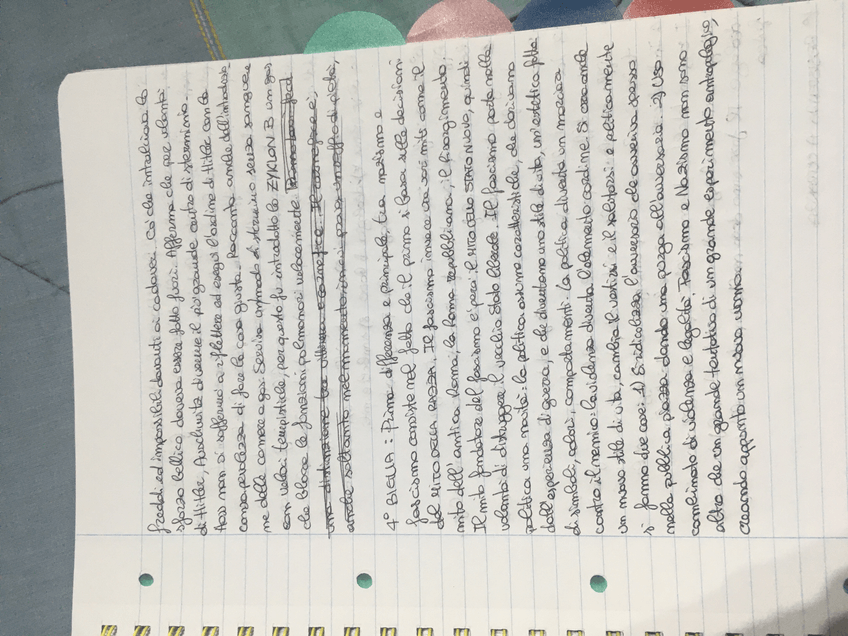 freddi ed impossibili davanti a cadaveri. Ciò che intralciava lo
sforzo bellico doveva essere fatto fuori. Afferma che per volontà
di Hitler, Auschwitz divenne il più grande centro di sterminio.
Höss non si soffermò a riflettere ed eseguì l'ordine di Hitler con la
consapevolezza di fare la cosa giusta. Racconta anche dell'introduzio
ne delle camere a gas. Serviva un metodo di sterminio senza sangue e
con veloci tempistiche, per questo fu introdotto lo ZYKLON B un gas
che blocca le funzioni polmonari velocemente.
una distinzione tra vittima e carnefice. Il carnefice è,
anche soltanto nel mi prova un soffio di pietà,
4° SIGLIA: Prima differenza e principale, tra nazismo e
fascismo consiste nel fatto che il primo si basa sulle decisioni
del MITO DELLA RAZZA. Il fascismo invece ha vari miti come il
mito dell'antica Roma, la Roma repubblicana, il risorgimento.
Il mito fondatore del fascismo è però il MITO DELLO STATO NUOVO, quindi
volontà di distruggere il vecchio stato liberale. Il fascismo porta nella
politica una novità: la politica assume caratteristiche, che derivano
dall'esperienza di guerra, e che diventano uno stile di vita, un'estetica fatta
di simboli, colori, comportamenti. La politica diventa una marcia
contro il nemico: la violenza diventa l'elemento cardine. Si espande
un nuovo stile di vita, cambia il vestirsi e il salutarsi e politicamente
si fanno due cose: 1) Si ridicolizza l'avversario che avveniva spesso
nella pubblica piazza dando una purga all'avversario. 2) Uso
combinato di violenza e legalità. Fascismo e Nazismo non sono
altro che un grande tentativo di un grande esperimento antropologico,
creando appunto un nuovo uomo